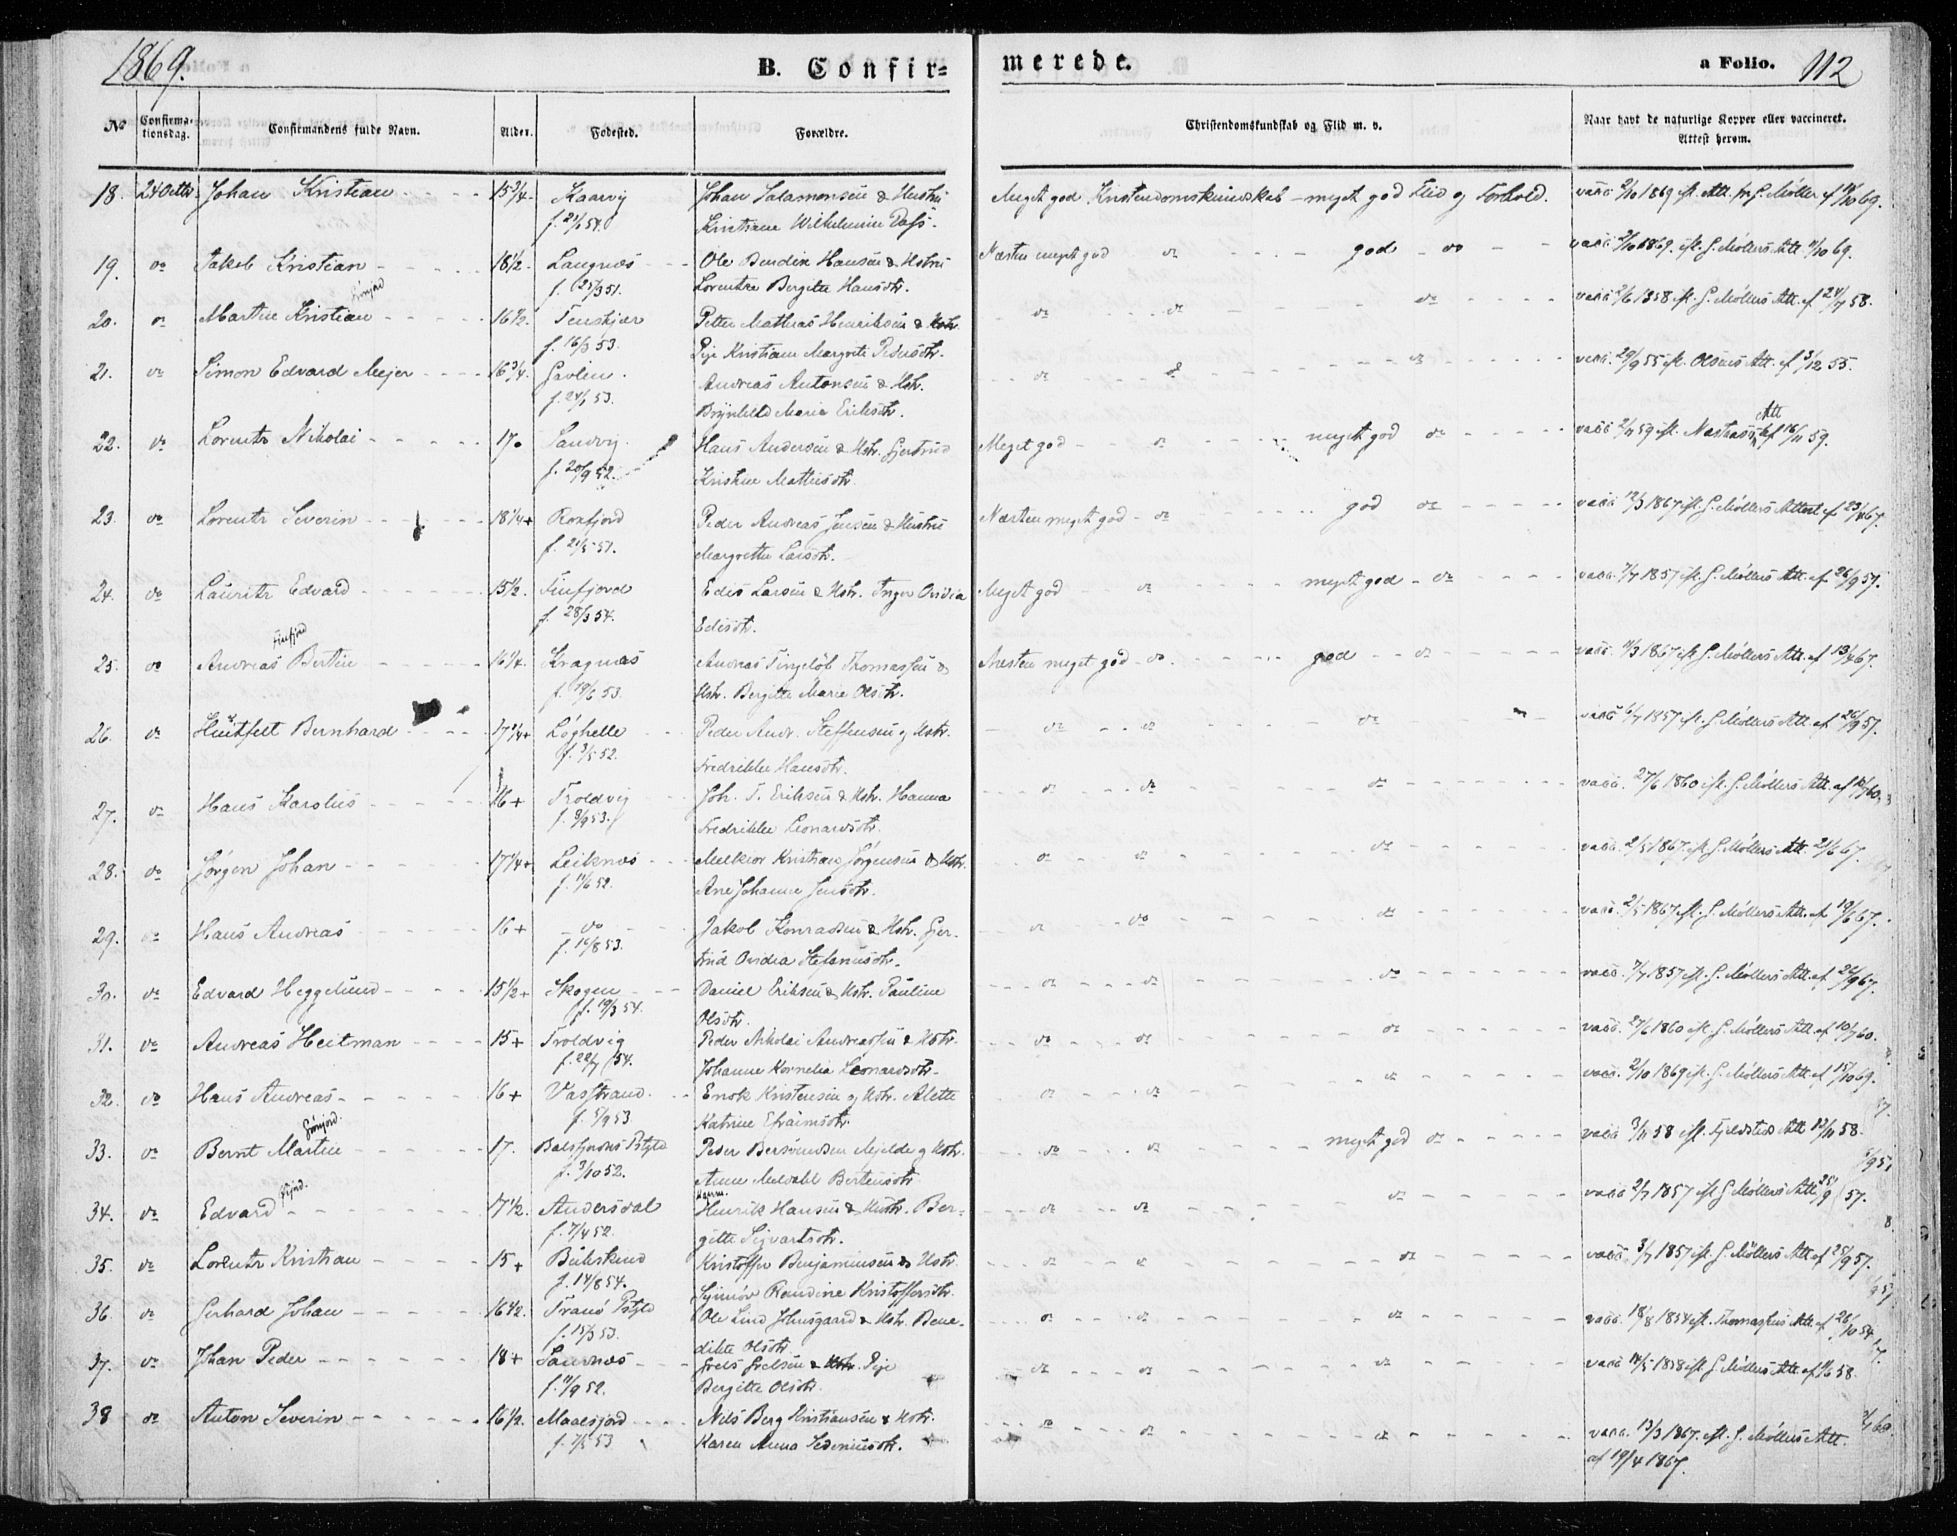 1869.
B. Confir-
merede.
a Folio. 112
No
Confirma-
tionsdag.
Confirmandens fulde Navn.
Alder.
Fødested.
Forældre.
Christendomskundskab og Flid m. v.
Naar havt de naturlige Kopper eller vaccineret.
Attest herom.
18. 24 Octbr Johan Kristian 15 3/4 Kaarvig Johan Salamonsen & Hustru Meget god Kristendomskundskab - meget god Flid og Forhold. vacc. 2/10 1869 ifl. Att. fra G. Møller af 69.
Kristiane Wilhelmine Dass.
19. do Jakob Kristian 18 1/2 Langnæs Ole Bendix Hansen & Hstru Næsten meget god do god do vacc. 1869. ifl. G. Møllers Att. 69.
f. 51. Lorentze Bergitte Hansdtr.
20. do Martin Kristian 16 1/2 Tenskjær Petter Mathias Henriksen & Hstr. do do do vacc. 2/6 1858 ifl. G. Møllers Att. af 24/7 58.
f. 16/3 53. Peje Kristiane Margrete Pedersdtr.
21. do Simon Edvard Mejer 16 3/4 Gavlen. Andreas Antonsen & Hstr. do do do vacc. 29/9 55 ifl. Olsens Att. af 3/12 55.
f. 24/1 53. Brynhild Maria Eriksdtr.
22. do Lorentz Nikolai 17. Sandvig. Hans Andersen & Hstr. Gjertrud Meget god do meget god do vacc. 59 ifl. Att af 16/11 59.
f. 20/9 52. Kristine Mathisdtr.
23. do Lorentz Severin 18 1/4 + Roxfjord Peder Andreas Jensen & Hustru Næsten meget god do god do vacc. 12/3 1867 ifl. G. Møllers Attest af 67.
f. 21/5 51. Margrethe Larsdtr.
24. do Lauritz Edvard 15 1/2. Finfjord Edis Larsen & Hstr. Inger Ovidia Meget god do meget god do vacc. 7/7 1857 ifl. G. Møllers Att. af 26/9 57.
f. 28/3 54. Edisdtr.
Finfjord
25. do Andreas Bertin 16 1/4. Kragnæs Andreas Thomassen & Næsten meget god do god do vacc. 1867 ifl. G. Møllers Att. af 13/4 67.
f. 19/6 53. Hstr. Bergitte Marie Olsdtr.
26. do Huitfelt Bernhard 17 1/4 + Løghelle Peder Andr. Steffensen og Hstr. do do do vacc. 1857 ifl. G. Møllers Att. af 26/9 57.
f. 3/5 52. Fredrikke Hansdtr.
27. do Hans Karolus 16 + Troldvig Joh. T. Eriksen & Hstr. Hanna do do do vacc. 27/6 1860 ifl. G. Møllers Att. af 60.
f. 8/9 53. Fredrikke Leonardsdtr.
28. do Jørgen Johan 17 1/4 + Leiknæs Melkior Kristian Jørgensen & Hstr. do do do vacc. 2/5 1867 ifl. G. Møllers Att. 67.
f. 11/6 52. Ane Johanne Jensdtr.
29. do Hans Andreas 16 + do Jakob Konradsen & Hstr. Gjer- do do do vacc. 2/5 1867 ifl. G. Møllers Att. af 19/6 67.
f. 16/8 53. trud Ovidia Stefanusdtr.
30. do Edvard Heggelund 15 1/2 + Skogen Daniel Eriksen & Hstr. Pauline do do do vacc. 7/7 1857 ifl. G. Møllers Att. af
f. 19/3 54. Olsdtr.
31. do Andreas Heitman 15 + Troldvig Peder Nikolai Andreassen & Hstr. do do do vacc. 27/6 1860 ifl. G. Møllers Att. af 10/7 60.
f. 22/7 54. Johanne Kornelia Leonardsdtr.
32. do Hans Andreas 16 + Vasstrand. Enok Kristensen og Hstr. Alette do do do vacc. 2/10 1869 ifl. G. Møllers Att. af 15/10 69.
f. 5/9 53 Katrine Efraimsdtr.
33. do Bernt Martin 17. Balsfjordens Pstgld Peder Berntsen Mjelde og Hstr. do do meget god do vacc. 3/11 58 ifl. Fjeldsteds Att 12/11 58.
f. 3/10 52. Anne Mevald Bertensdtr.
34. do Edvard 17 1/2. Andersdal Henrik Hansen & Hustr. Ber- do do do vacc. 2/7 1857 ifl. G. Møllers Att. 57.
f. 7/4 52. gitte Sigvartsdtr.
35. do Lorentz Kristian 15 + Kristoffer Benjaminsen & Hstr. do do do vacc. 3/7 1857 ifl. G. Møllers Att af 25/9 57.
f. 14/8 54. Synnøv Randine Kristoffersdtr.
36. do Gerhard Johan 16 1/2. Tranø Pstgld Ole Lind & Hstr. Bene- do do do vacc. 18/8 1854 ifl. Thomassens Att. af 26/10 54.
f. 15/3 53. dikte Olsdtr.
37. do Johan Peder 18 + Saurnæs & Hstr. Peje do do do vacc. 14/5 1858 ifl. G. Møllers Att. af 58.
f. 11/9 52. Bergitte Olsdtr.
38 do Anton Severin 16 1/2. Maalsjord Nils Berg Kristiansen & Hstr. do do do vacc. 13/3 1867. ifl. G. Møllers Att.
f. 53 Karen Anna Sedeniusdtr. af 19/4 1867.